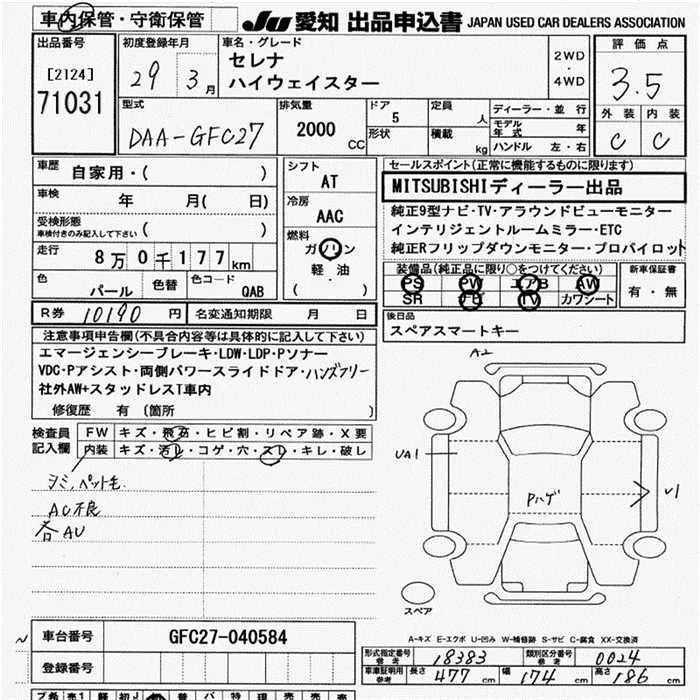 車内保管・守衛保管
JU 愛知 出品申込書 JAPAN USED CAR DEALERS ASSOCIATION
出品番号
[2124]
71031
初度登録年月
29 3月
車名・グレード
セレナ
ハイウェイスター
2WD
・
4WD
評価点
3.5
外装 内装
C C
型式
DAA-GFC27
排気量
2000
CC
ドア
5
形状
定員
人
積載
kg
ディーラー・並行
モデル年式 年
ハンドル 左・右
車歴 自家用・( )
車検 年 月( 日)
受検形態
車検付きのみ記入して下さい ( )
走行 8万0千177km
色 パール 色替 色コード QAB
シフト
AT
冷房
AAC
燃料
ガソリン
軽・油
( )
セールスポイント(正常に機能するものに限ります)
MITSUBISHIディーラー出品
純正9型ナビ・TV・アラウンドビューモニター
インテリジェントルームミラー・ETC
純正Rフリップダウンモニター・プロパイロット
装備品(純正品に限り○をつけてください)
PS PW エアB AW
SR ナビ TV カワシート
新車保証書
有・無
R券 10190 円 名変通知期限 月 日
後日品
スペアスマートキー
注意事項申告欄(不具合内容等は具体的に記入して下さい)
エマージェンシーブレーキ・LDW・LDP・Pソナー
VDC・Pアシスト・両側パワースライドドア・ハンズフリー
社外AW+スタッドレスT車内
修復歴 有 (箇所 )
検査員記入欄
FW キズ・飛石・ヒビ割・リペア跡・X要
内装 キズ・汚れ・コゲ・穴・スレ・キレ・破レ
シミ、ペット毛
AC不良
各AU
A2
UA1
Pハゲ
U1
スペア
A-キズ E-エクボ U-凹み W-補修跡 S-サビ C-腐食 XX-交換済
車台番号 GFC27-040584
登録番号
形式指定番号 参考 18383 類別区分番号 参考 0024
車庫証明用 参考 長さ 477 cm 幅 174 cm 高さ 186 cm